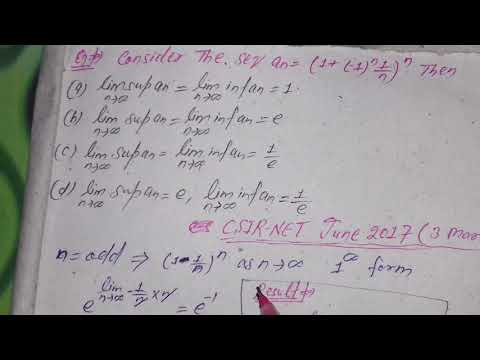 Q.1) Consider The seq an = (1 + (-1)^n 1/n)^n Then
(a) lim sup an = lim inf an = 1.
n→∞ n→∞
(b) lim sup an = lim inf an = e
n→∞ n→∞
(c) lim sup an = lim inf an = 1/e
n→∞ n→∞
(d) lim sup an = e, lim inf an = 1/e
n→∞ n→∞
CSIR-NET June 2017 (3 Mar
n = odd ⇒ (1 - 1/n)^n as n→∞ 1^∞ form
e^(lim n→∞ -1/n × n) = e^-1
Result ⇒